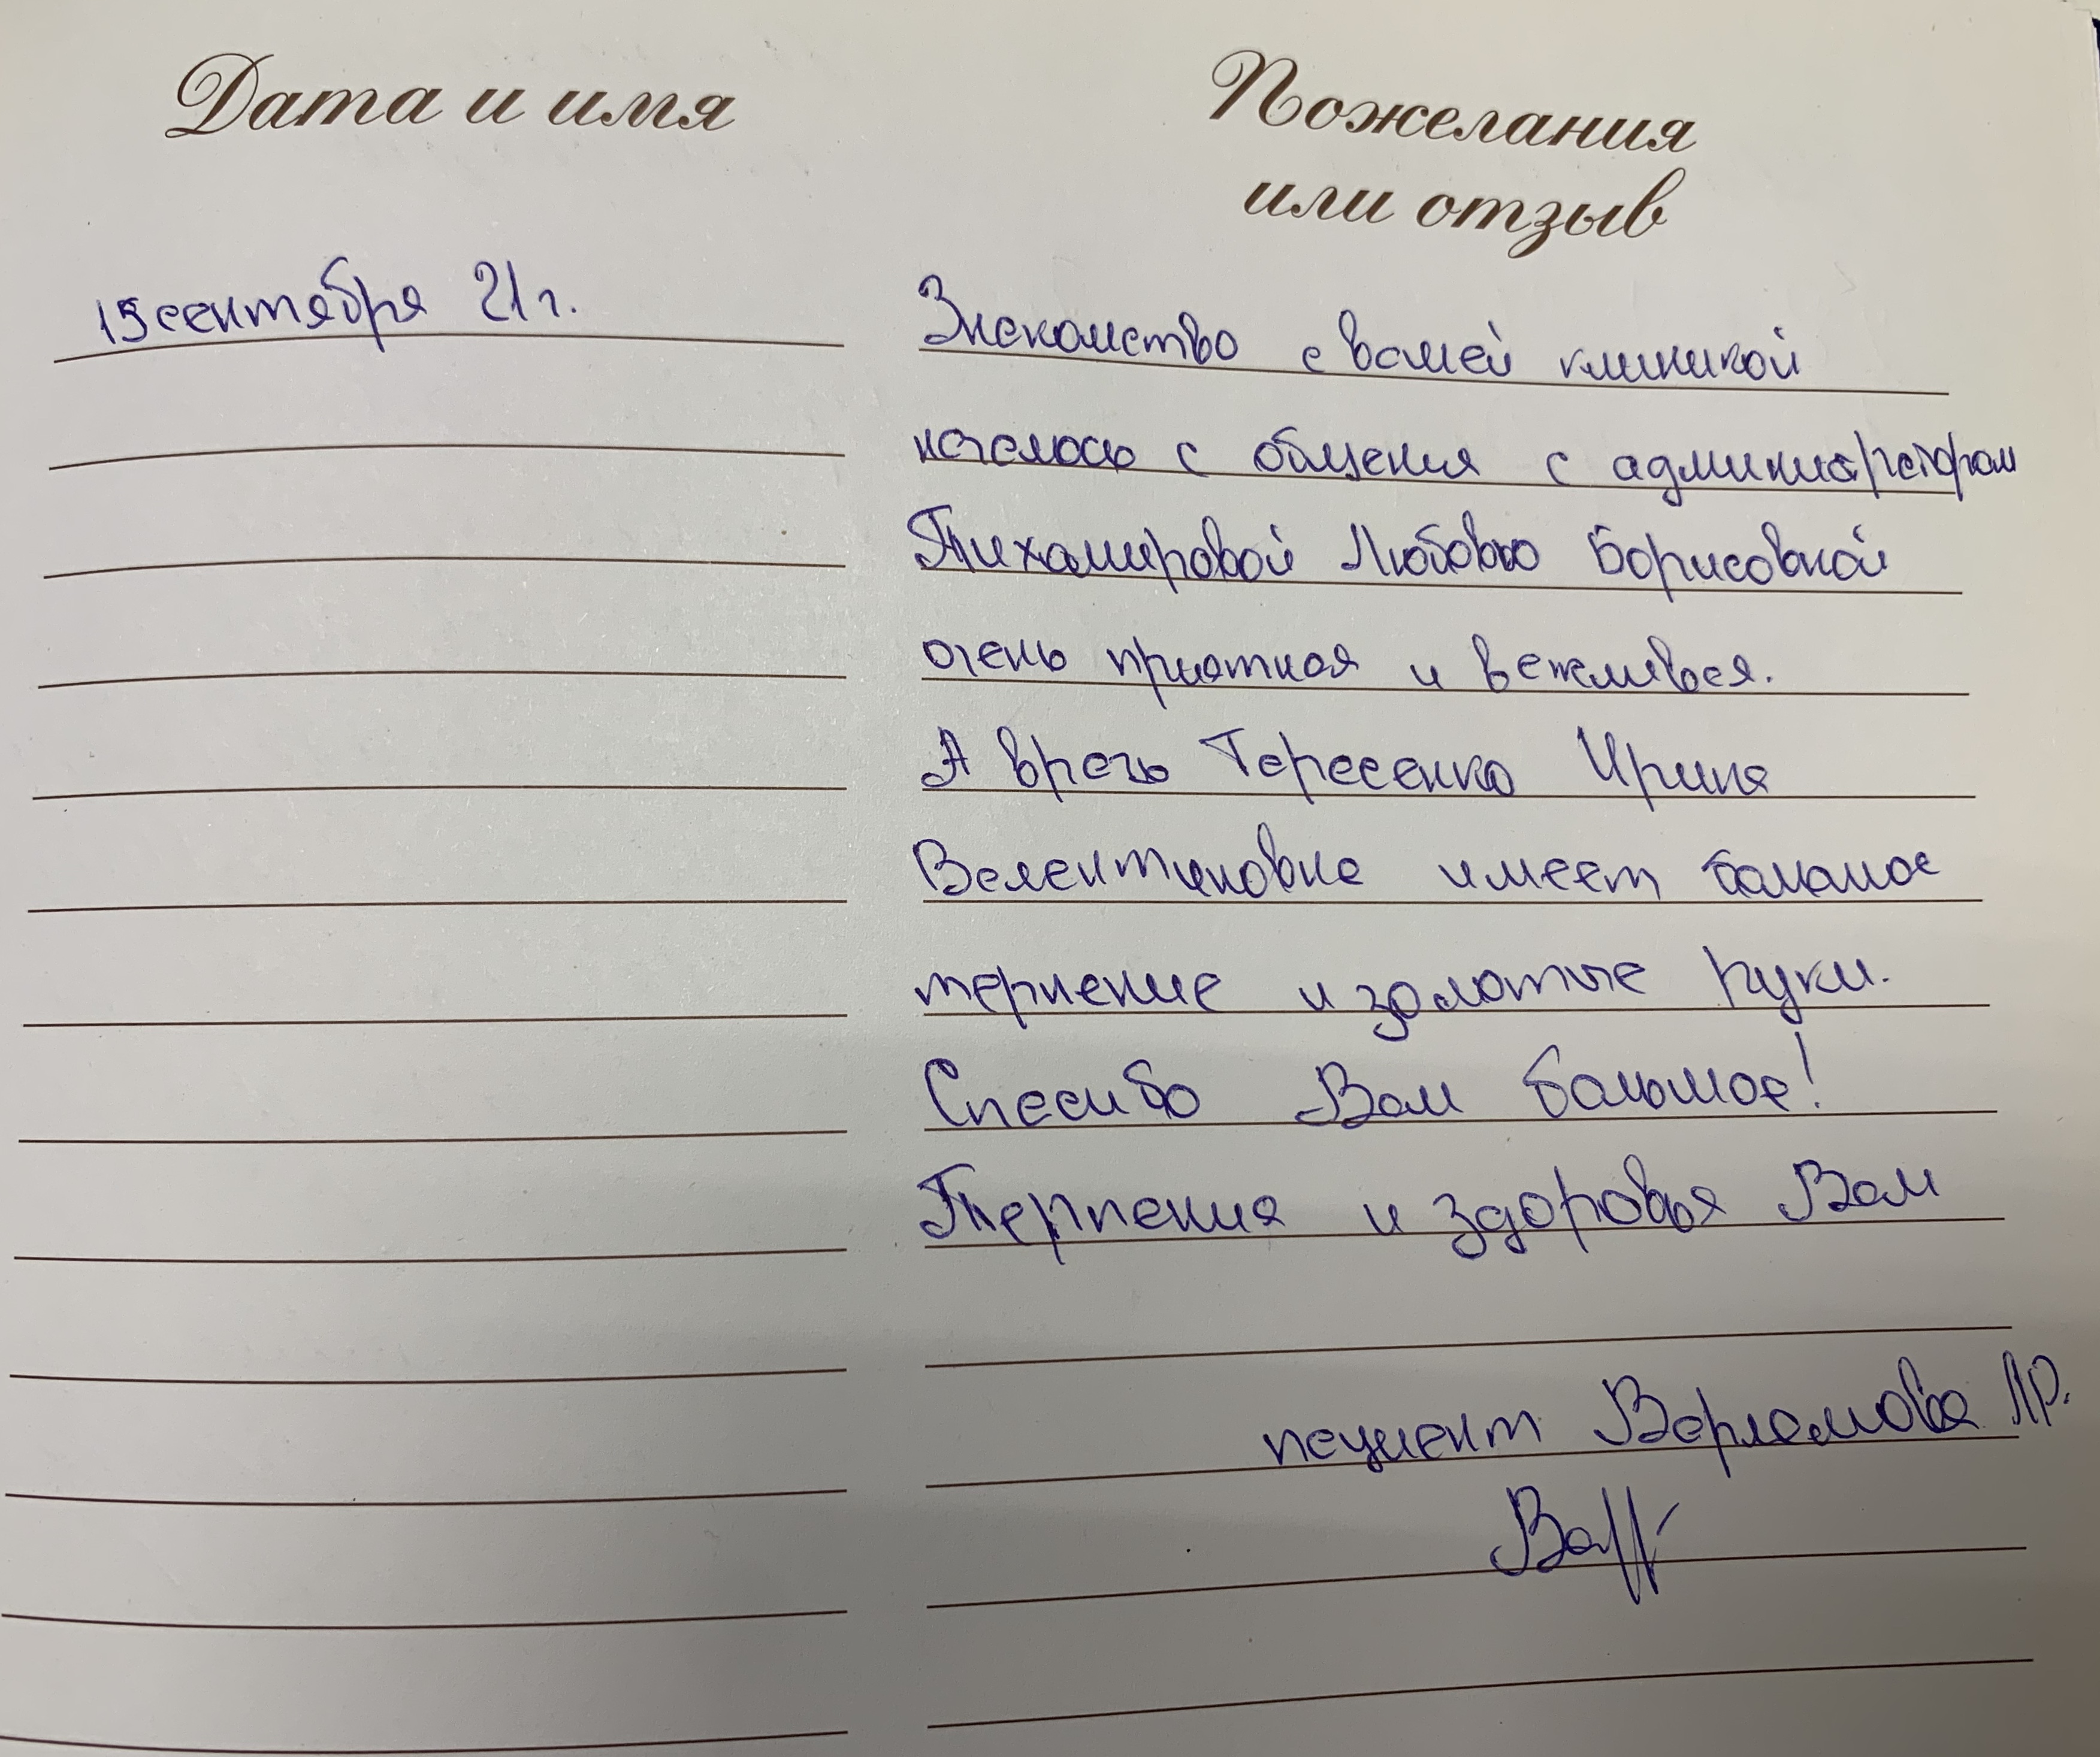 Дата и имя
Пожелания
или отзыв
15 сентября 21 г.
Знакомство с вашей клиникой
началось с общения с администратором
Тихомировой Любовью Борисовной
очень приятная и вежливая.
А врачь Тарасенко Ирина
Валентиновна имеет большое
терпение и золотые руки.
Спасибо Вам большое!
Терпения и здоровья Вам
пациент Варламова Л.Р.